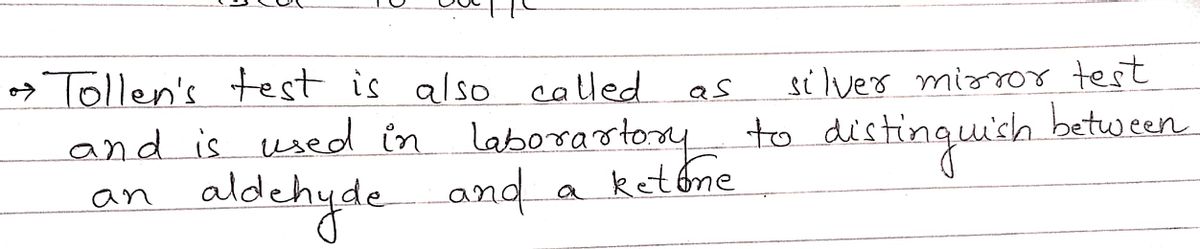 → Tollen's test is also called as silver mirror test
and is used in laborartory to distinguish between
an aldehyde and a ketone